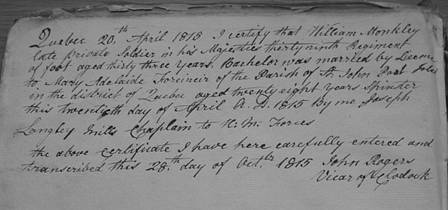 Quebec 20th April 1815 I certify that William Monkley
late Private Soldier in his Majesties thirty ninth Regiment
of foot aged thirty three years, Bachelor was married by License
to Mary Adelaide of the Parish of St. John Port
in the district of Quebec aged twenty eight years Spinster
this twentieth day of April A.D. 1815 By me Joseph
Langley Mills Chaplain to H. M. Forces
the above Certificate I have here carefully entered and
transcribed this 28th day of Octbr 1815 John Rogers
Vicar of Clodock